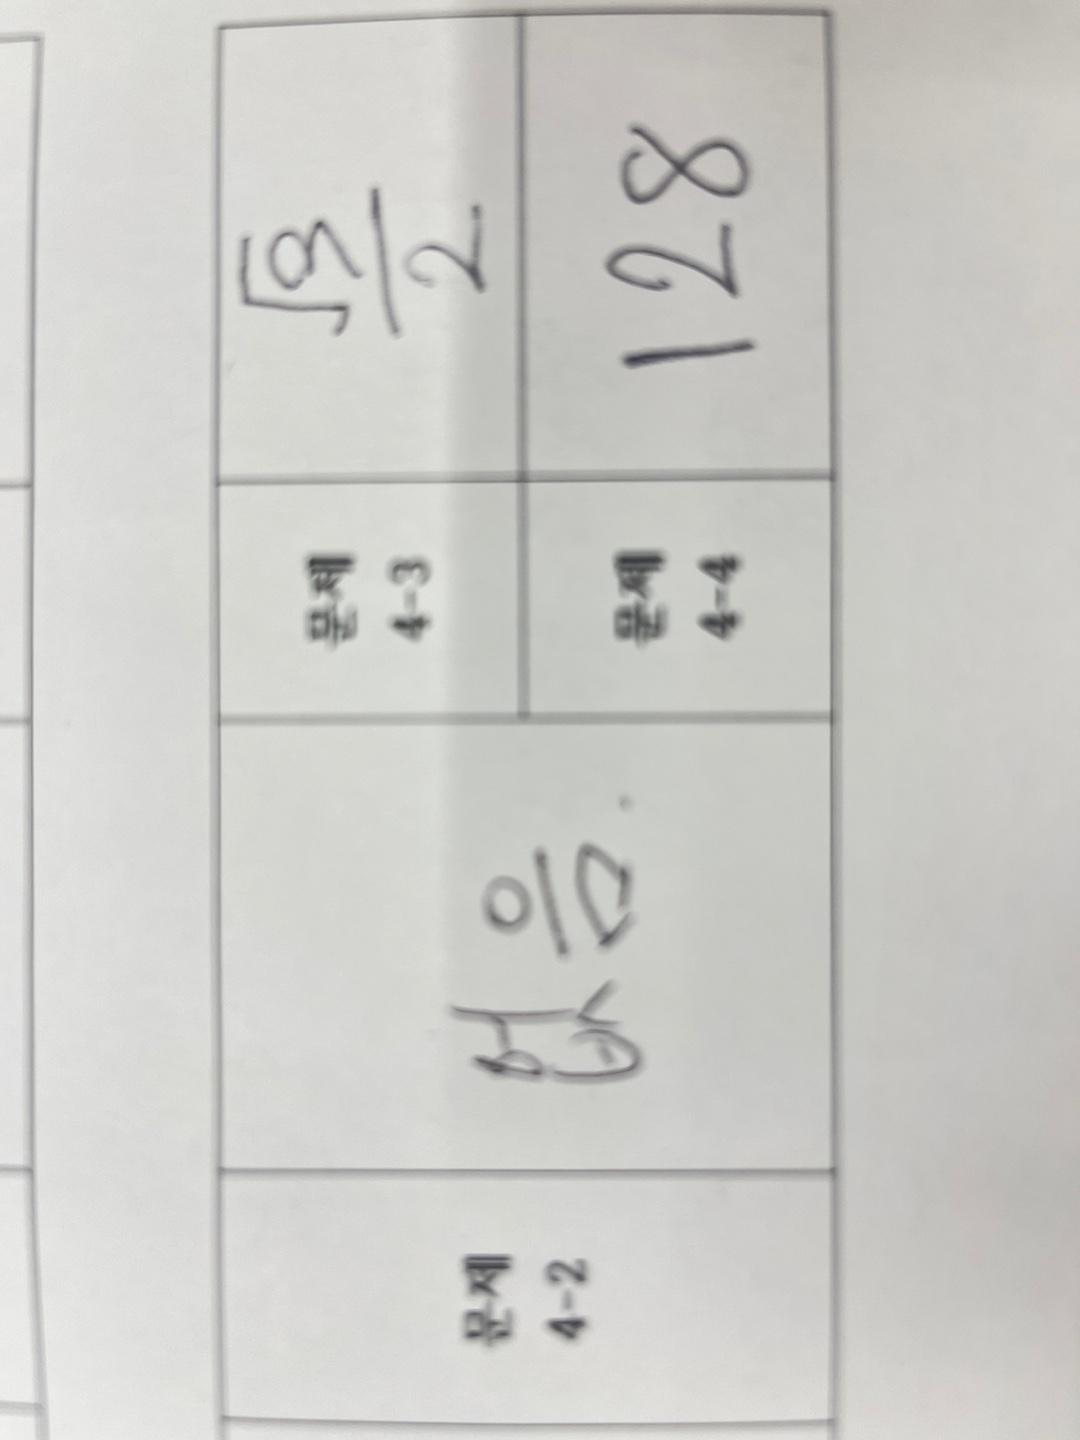 문제
4-2
없음.
문제
4-3
√9/2
문제
4-4
128